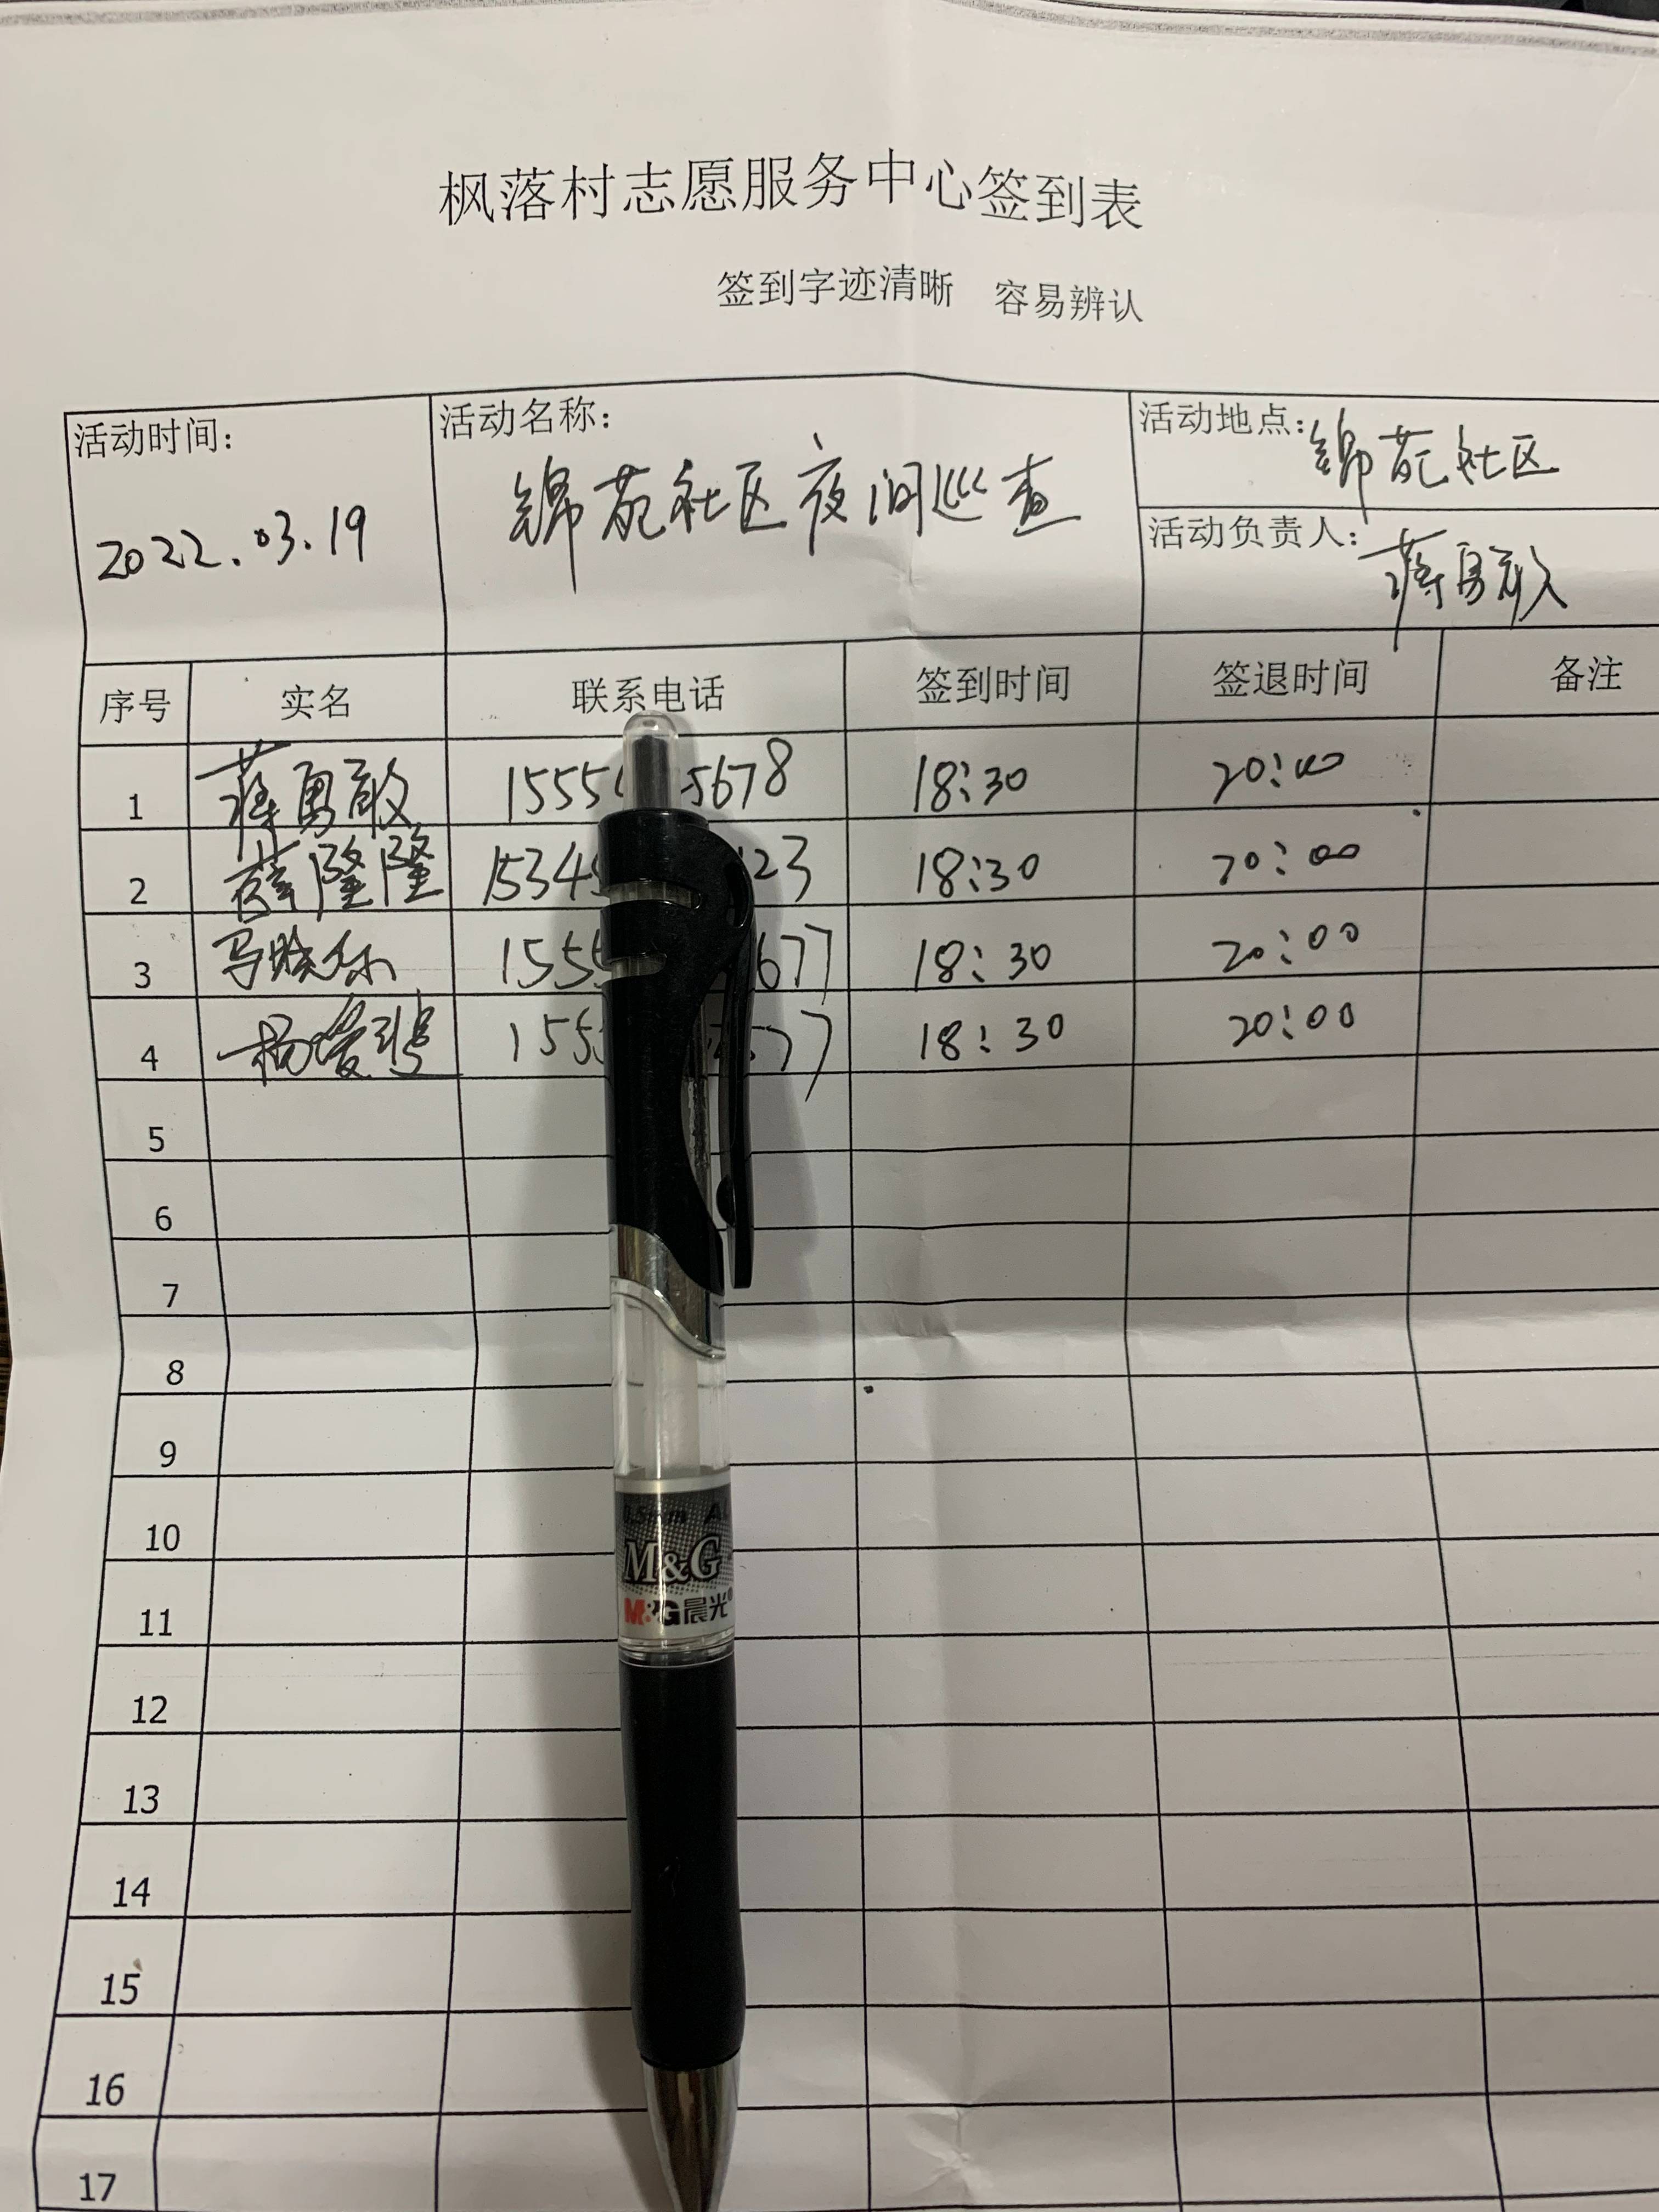 枫落村志愿服务中心签到表
签到字迹清晰 容易辨认
活动时间:
2022.03.19
活动名称:
锦苑社区夜间巡查
活动地点: 锦苑社区
活动负责人: 蒋勇敢
序号 实名 联系电话 签到时间 签退时间 备注
1 蒋勇敢 1555 5678 18:30 20:00
2 薛隆隆 1534 23 18:30 20:00
3 马 1555 677 18:30 20:00
4 杨 155 77 18:30 20:00
5
6
7
8
9
10
11
12
13
14
15
16
17
0.5mm
M&G
M&G晨光